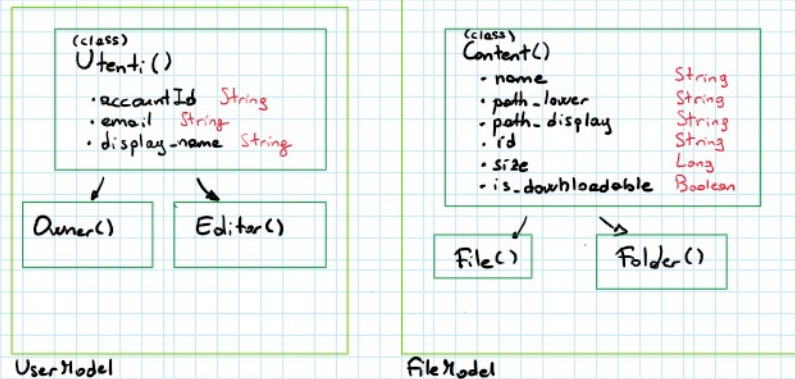 (class)
Utenti()
• accountId String
• email String
• display_name String
Owner()
Editor()
UserModel
(class)
Content()
• name String
• path_lower String
• path_display String
• id String
• size Long
• is_downloadable Boolean
File()
Folder()
FileModel